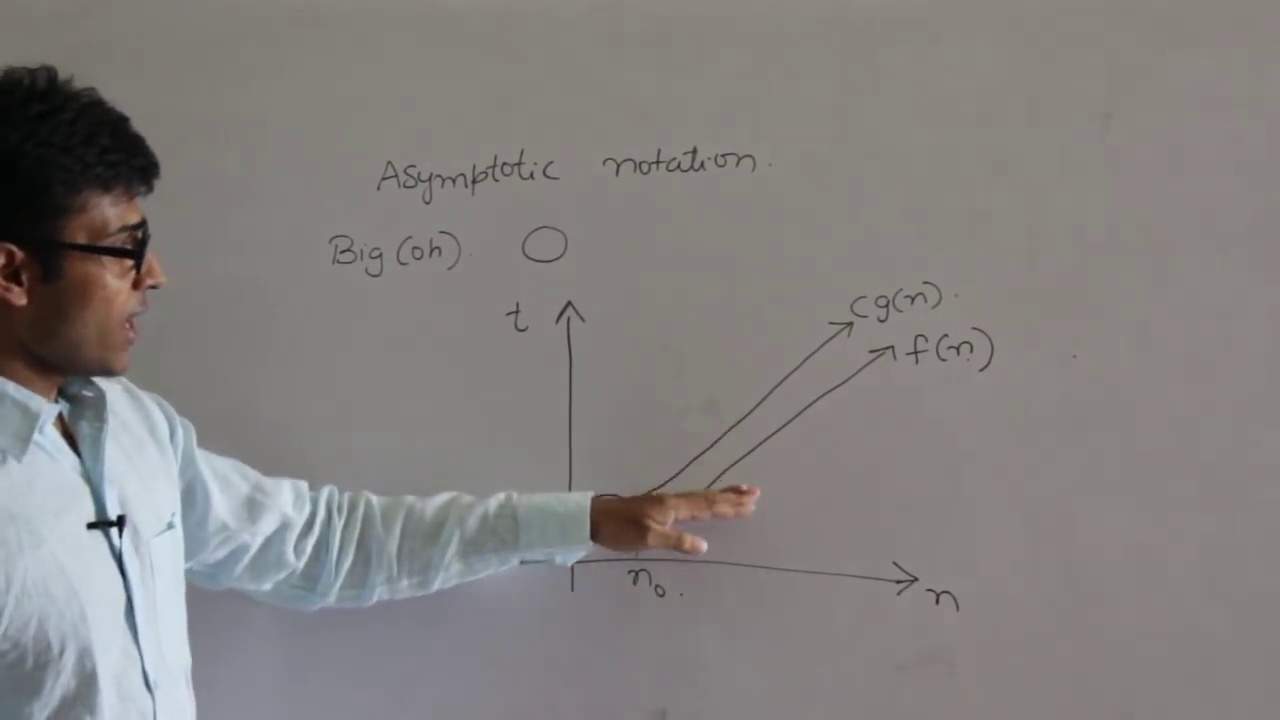 Asymptotic notation.
Big (oh). O
t
cg(n).
f(n)
n₀.
n